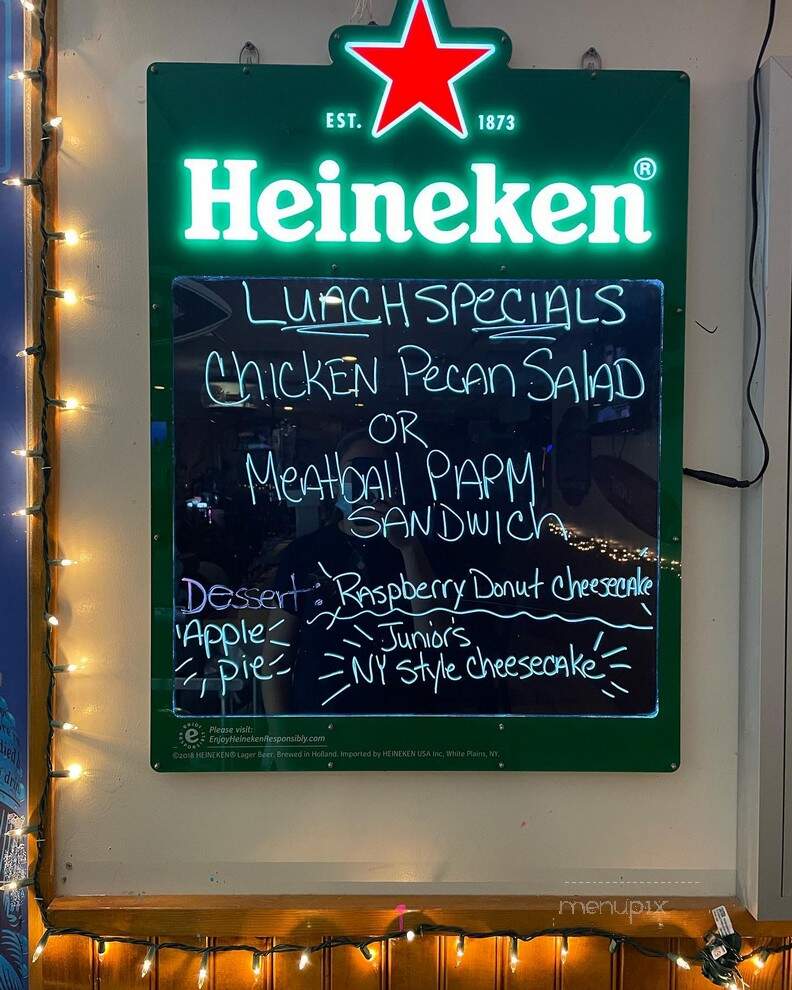 EST. 1873
Heineken®
LUNCH SPECIALS
CHICKEN Pecan SALAD
OR
Meatball PARM
SANDWICH
Dessert: Raspberry Donut Cheesecake
Apple
pie
Junior's
NY style cheesecake
Please visit:
EnjoyHeinekenResponsibly.com
©2018 HEINEKEN® Lager Beer. Brewed in Holland. Imported by HEINEKEN USA Inc, White Plains, NY.
menupix